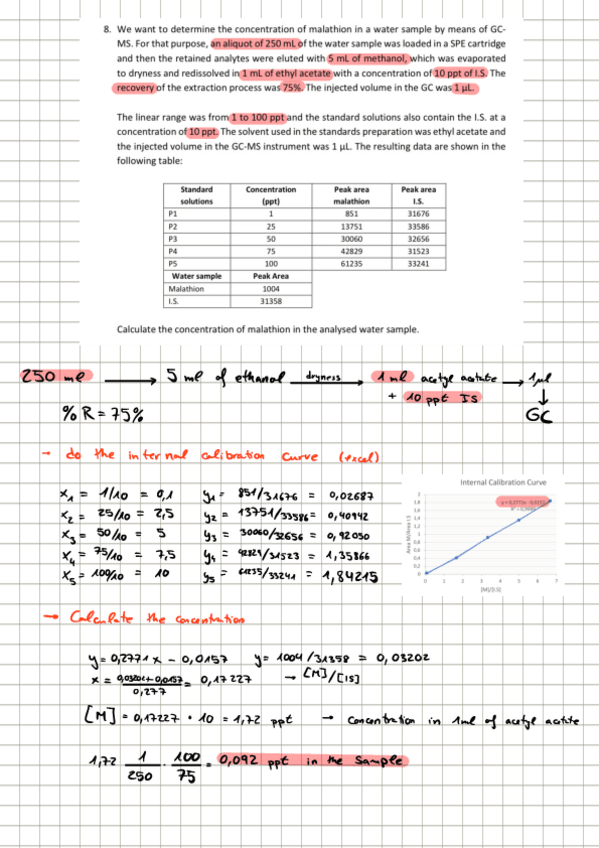 8. We want to determine the concentration of malathion in a water sample by means of GC-
MS. For that purpose, an aliquot of 250 mL of the water sample was loaded in a SPE cartridge
and then the retained analytes were eluted with 5 mL of methanol, which was evaporated
to dryness and redissolved in 1 mL of ethyl acetate with a concentration of 10 ppt of I.S. The
recovery of the extraction process was 75%. The injected volume in the GC was 1 µL.
The linear range was from 1 to 100 ppt and the standard solutions also contain the I.S. at a
concentration of 10 ppt. The solvent used in the standards preparation was ethyl acetate and
the injected volume in the GC-MS instrument was 1 µL. The resulting data are shown in the
following table:
Standard solutions Concentration (ppt) Peak area malathion Peak area I.S.
P1 1 851 31676
P2 25 13751 33586
P3 50 30060 32656
P4 75 42829 31523
P5 100 61235 33241
Water sample Peak Area
Malathion 1004
I.S. 31358
Calculate the concentration of malathion in the analysed water sample.
250 ml → 5 ml of ethanol dryness → 1 ml acetyl acetate → 1 µl
+ 10 ppt IS ↓
% R = 75% GC
→ do the internal calibration curve (excel)
x1 = 1/10 = 0,1 y1 = 851/31676 = 0,02687
x2 = 25/10 = 2,5 y2 = 13751/33586 = 0,40942
x3 = 50/10 = 5 y3 = 30060/32656 = 0,92050
x4 = 75/10 = 7,5 y4 = 42829/31523 = 1,35866
x5 = 100/10 = 10 y5 = 61235/33241 = 1,84215
Internal Calibration Curve
Area M/Area I.S
2
1,8
1,6
1,4
1,2
1
0,8
0,6
0,4
0,2
0
0 1 2 3 4 5 6 7
[M]/[I.S]
→ Calculate the concentration
y = 0,2771x - 0,0157 y = 1004/31358 = 0,03202
x = 0,03202+0,0157/0,277 = 0,17227 → [M]/[IS]
[M] = 0,17227 · 10 = 1,72 ppt → concentration in 1ml of acetyl acetate
1,72 1/250 · 100/75 = 0,092 ppt in the sample